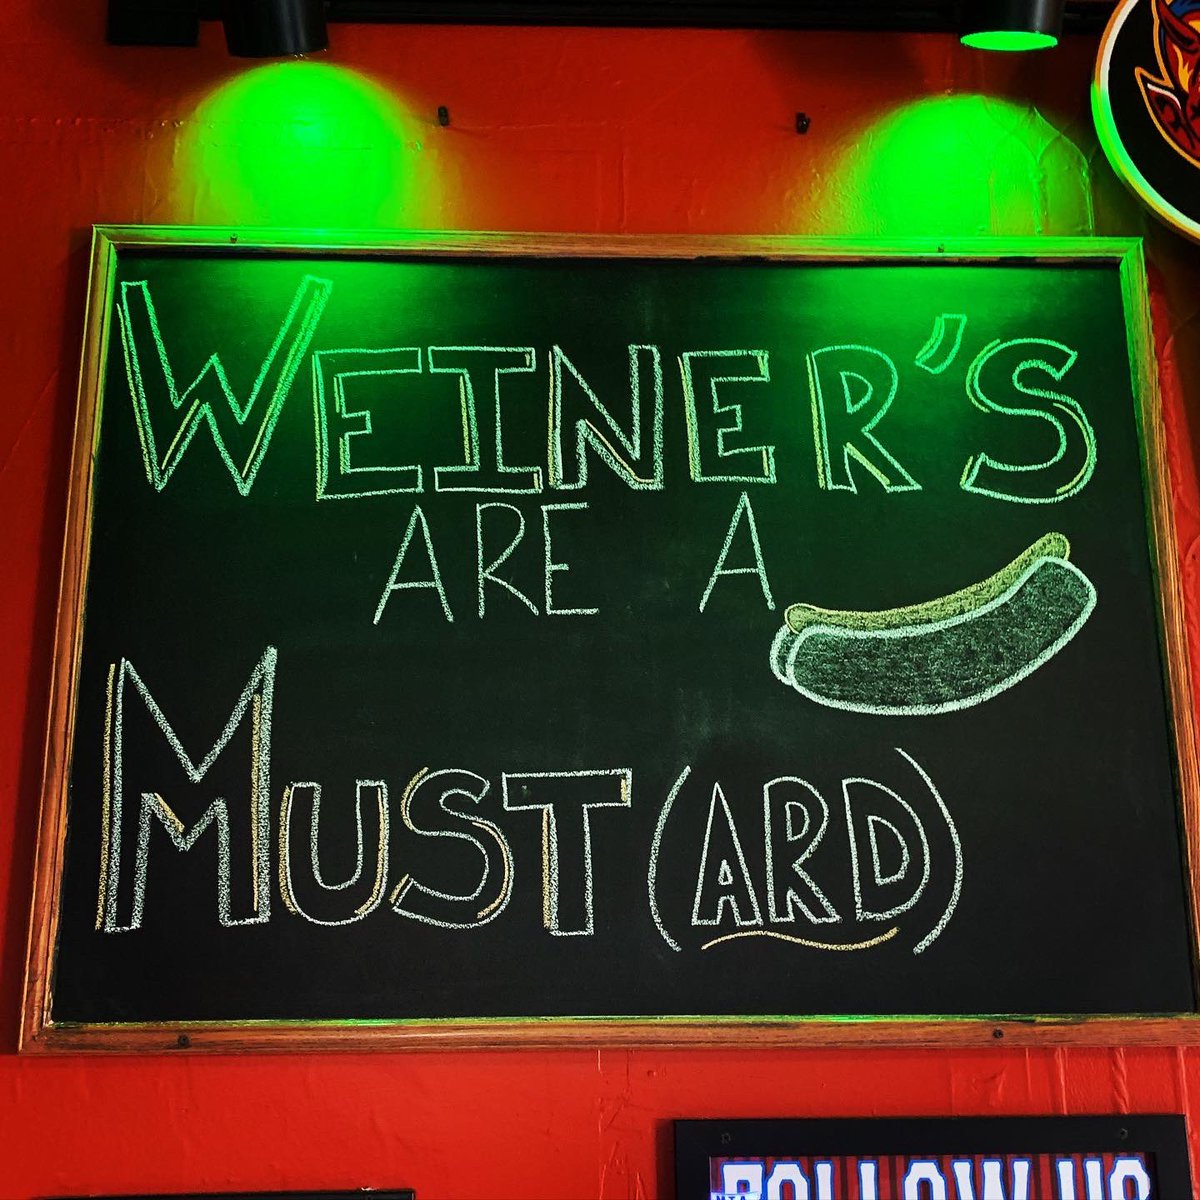 WEINER'S
ARE A
MUST(ARD)
FOLLOW US